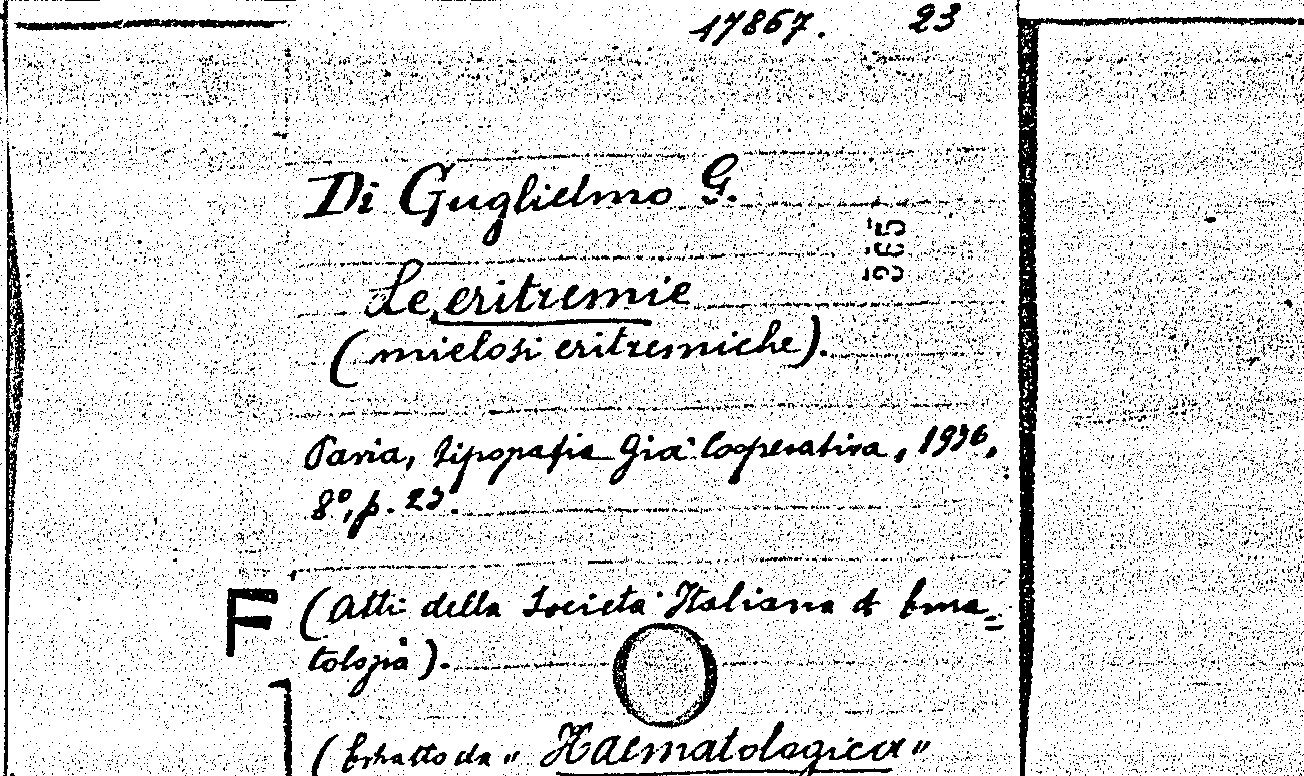 17867. 23
Di Guglielmo G.
365
Le eritremie
(mielosi eritremiche).
Pavia, tipografia già Cooperativa, 1936,
8°, p. 23.
F (Atti della Società Italiana di Ema=
tologia).
(Estratto da "Haematologica"